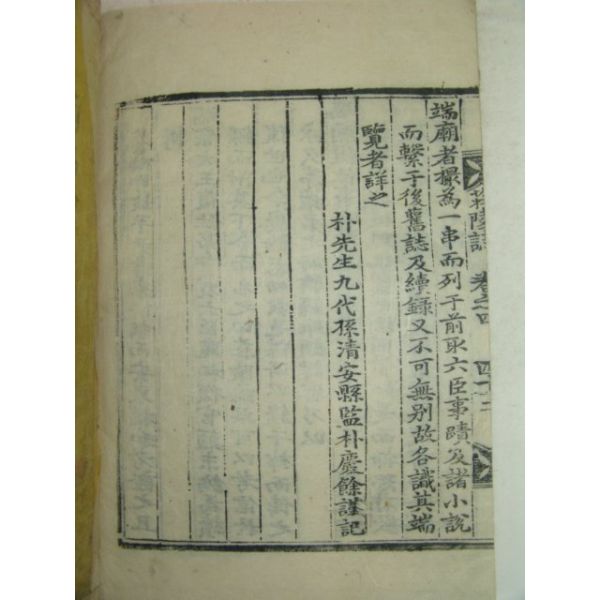 莊陵誌 卷之四 四十二
端廟者撮為一串而列于前取六臣事蹟及諸小說
而繫于後舊誌及續錄又不可無别故各識其端
覽者詳之
朴先生九代孫清安縣監朴慶餘謹記